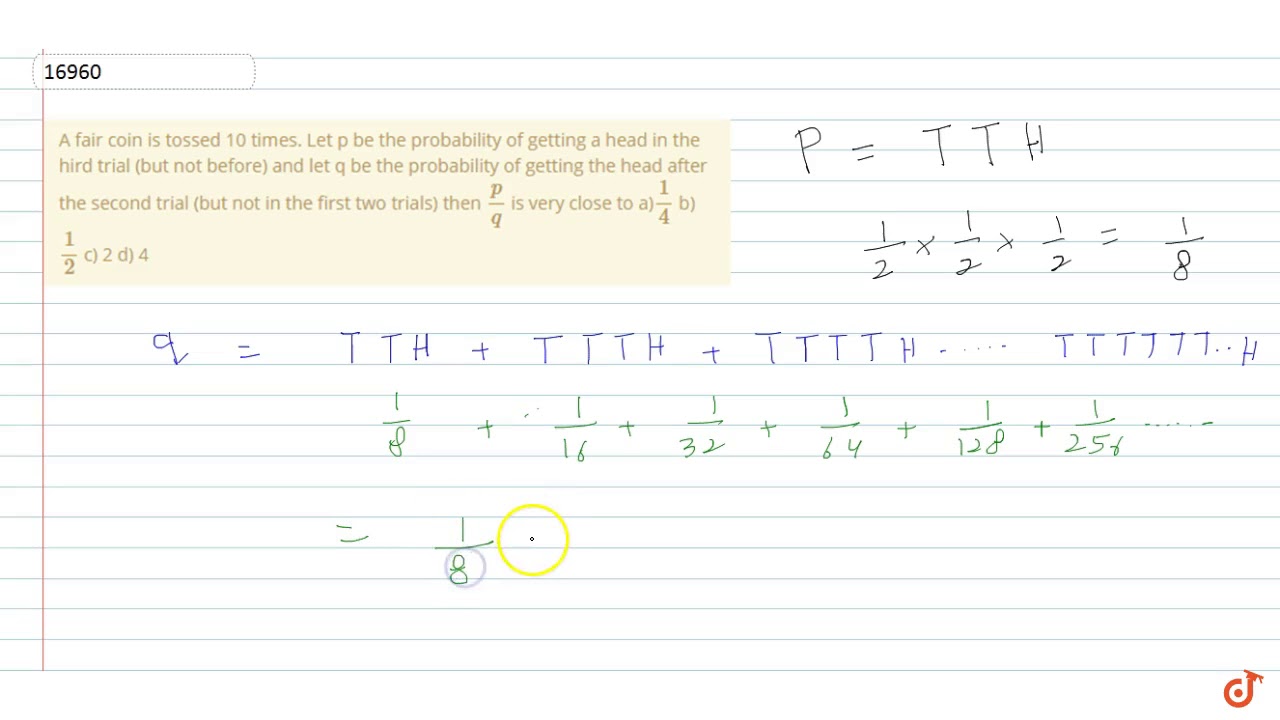 16960
A fair coin is tossed 10 times. Let p be the probability of getting a head in the
hird trial (but not before) and let q be the probability of getting the head after
the second trial (but not in the first two trials) then p/q is very close to a) 1/4 b)
1/2 c) 2 d) 4
P = T T H
1/2 × 1/2 × 1/2 = 1/8
q = T T H + T T T H + T T T T H ...... T T T T T T .. H
1/8 + .. 1/16 + 1/32 + 1/64 + 1/128 + 1/256 ......
= 1/8